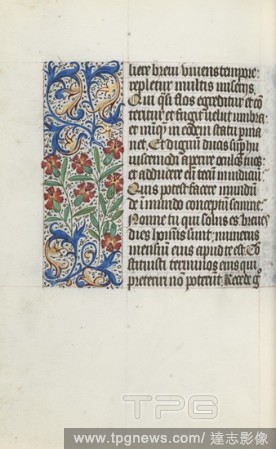 liere breui viuens tempore
repletur multis miserijs
Qui q̃si flos egreditur et cõ
teritur et fugit uelut umbra
et nũq̃ in eodem statu pma
net Et dignũ ducis sup hu
iuscemodi aperire oculos tuos
et adducere eũ tecũ in iudiciũ
Quis potest facere mundũ
de immundo conceptũ semine
Nonne tu qui solus es breues
dies hominis sunt numerus
mensium eius apud te est Cõ
stituisti terminos eius qui
preteriri nõ poterũt Recede
TPG
www.tpgnews.com/ 達志影像